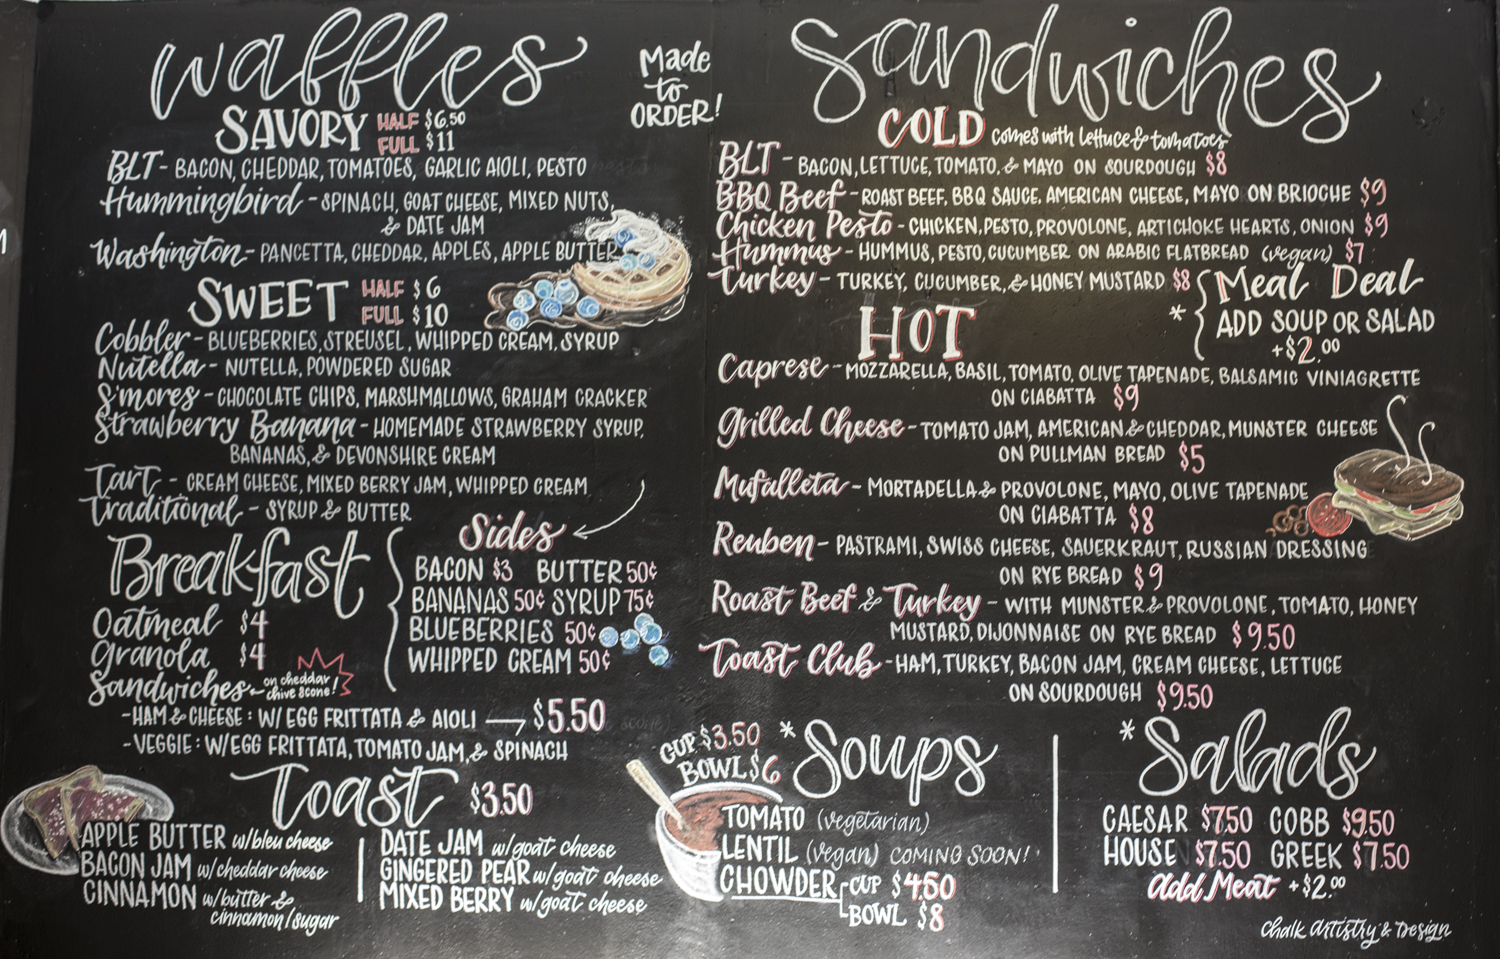 waffles
Made
to
ORDER!
SAVORY HALF $6.50
FULL $11
BLT - BACON, CHEDDAR, TOMATOES, GARLIC AIOLI, PESTO
Hummingbird - SPINACH, GOAT CHEESE, MIXED NUTS,
& DATE JAM
Washington - PANCETTA, CHEDDAR, APPLES, APPLE BUTTER
SWEET HALF $6
FULL $10
Cobbler - BLUEBERRIES, STREUSEL, WHIPPED CREAM, SYRUP
Nutella - NUTELLA, POWDERED SUGAR
S'mores - CHOCOLATE CHIPS, MARSHMALLOWS, GRAHAM CRACKER
Strawberry Banana - HOMEMADE STRAWBERRY SYRUP,
BANANAS, & DEVONSHIRE CREAM
Tart - CREAM CHEESE, MIXED BERRY JAM, WHIPPED CREAM
Traditional - SYRUP & BUTTER
Breakfast
Oatmeal $4
Granola $4
Sandwiches - on cheddar
chive scone!
- HAM & CHEESE: W/ EGG FRITTATA & AIOLI → $5.50
- VEGGIE: W/EGG FRITTATA, TOMATO JAM, & SPINACH
Sides
BACON $3 BUTTER 50¢
BANANAS 50¢ SYRUP 75¢
BLUEBERRIES 50¢
WHIPPED CREAM 50¢
Toast $3.50
APPLE BUTTER w/bleu cheese
BACON JAM w/cheddar cheese
CINNAMON w/butter &
cinnamon/sugar
DATE JAM w/goat cheese
GINGERED PEAR w/goat cheese
MIXED BERRY w/goat cheese
Sandwiches
COLD comes with lettuce & tomatoes
BLT - BACON, LETTUCE, TOMATO, & MAYO ON SOURDOUGH $8
BBQ Beef - ROAST BEEF, BBQ SAUCE, AMERICAN CHEESE, MAYO ON BRIOCHE $9
Chicken Pesto - CHICKEN, PESTO, PROVOLONE, ARTICHOKE HEARTS, ONION $9
Hummus - HUMMUS, PESTO, CUCUMBER ON ARABIC FLATBREAD (vegan) $7
Turkey - TURKEY, CUCUMBER, & HONEY MUSTARD $8
* Meal Deal
ADD SOUP OR SALAD
+$2.00
HOT
Caprese - MOZZARELLA, BASIL, TOMATO, OLIVE TAPENADE, BALSAMIC VINIAGRETTE
ON CIABATTA $9
Grilled Cheese - TOMATO JAM, AMERICAN & CHEDDAR, MUNSTER CHEESE
ON PULLMAN BREAD $5
Mufalleta - MORTADELLA & PROVOLONE, MAYO, OLIVE TAPENADE
ON CIABATTA $8
Reuben - PASTRAMI, SWISS CHEESE, SAUERKRAUT, RUSSIAN DRESSING
ON RYE BREAD $9
Roast Beef & Turkey - WITH MUNSTER & PROVOLONE, TOMATO, HONEY
MUSTARD, DIJONNAISE ON RYE BREAD $9.50
Toast Club - HAM, TURKEY, BACON JAM, CREAM CHEESE, LETTUCE
ON SOURDOUGH $9.50
CUP $3.50
BOWL $6
* Soups
TOMATO (vegetarian)
LENTIL (vegan) COMING SOON!
CHOWDER CUP $4.50
BOWL $8
* Salads
CAESAR $7.50 COBB $9.50
HOUSE $7.50 GREEK $7.50
Add Meat +$2.00
Chalk Artistry & Design